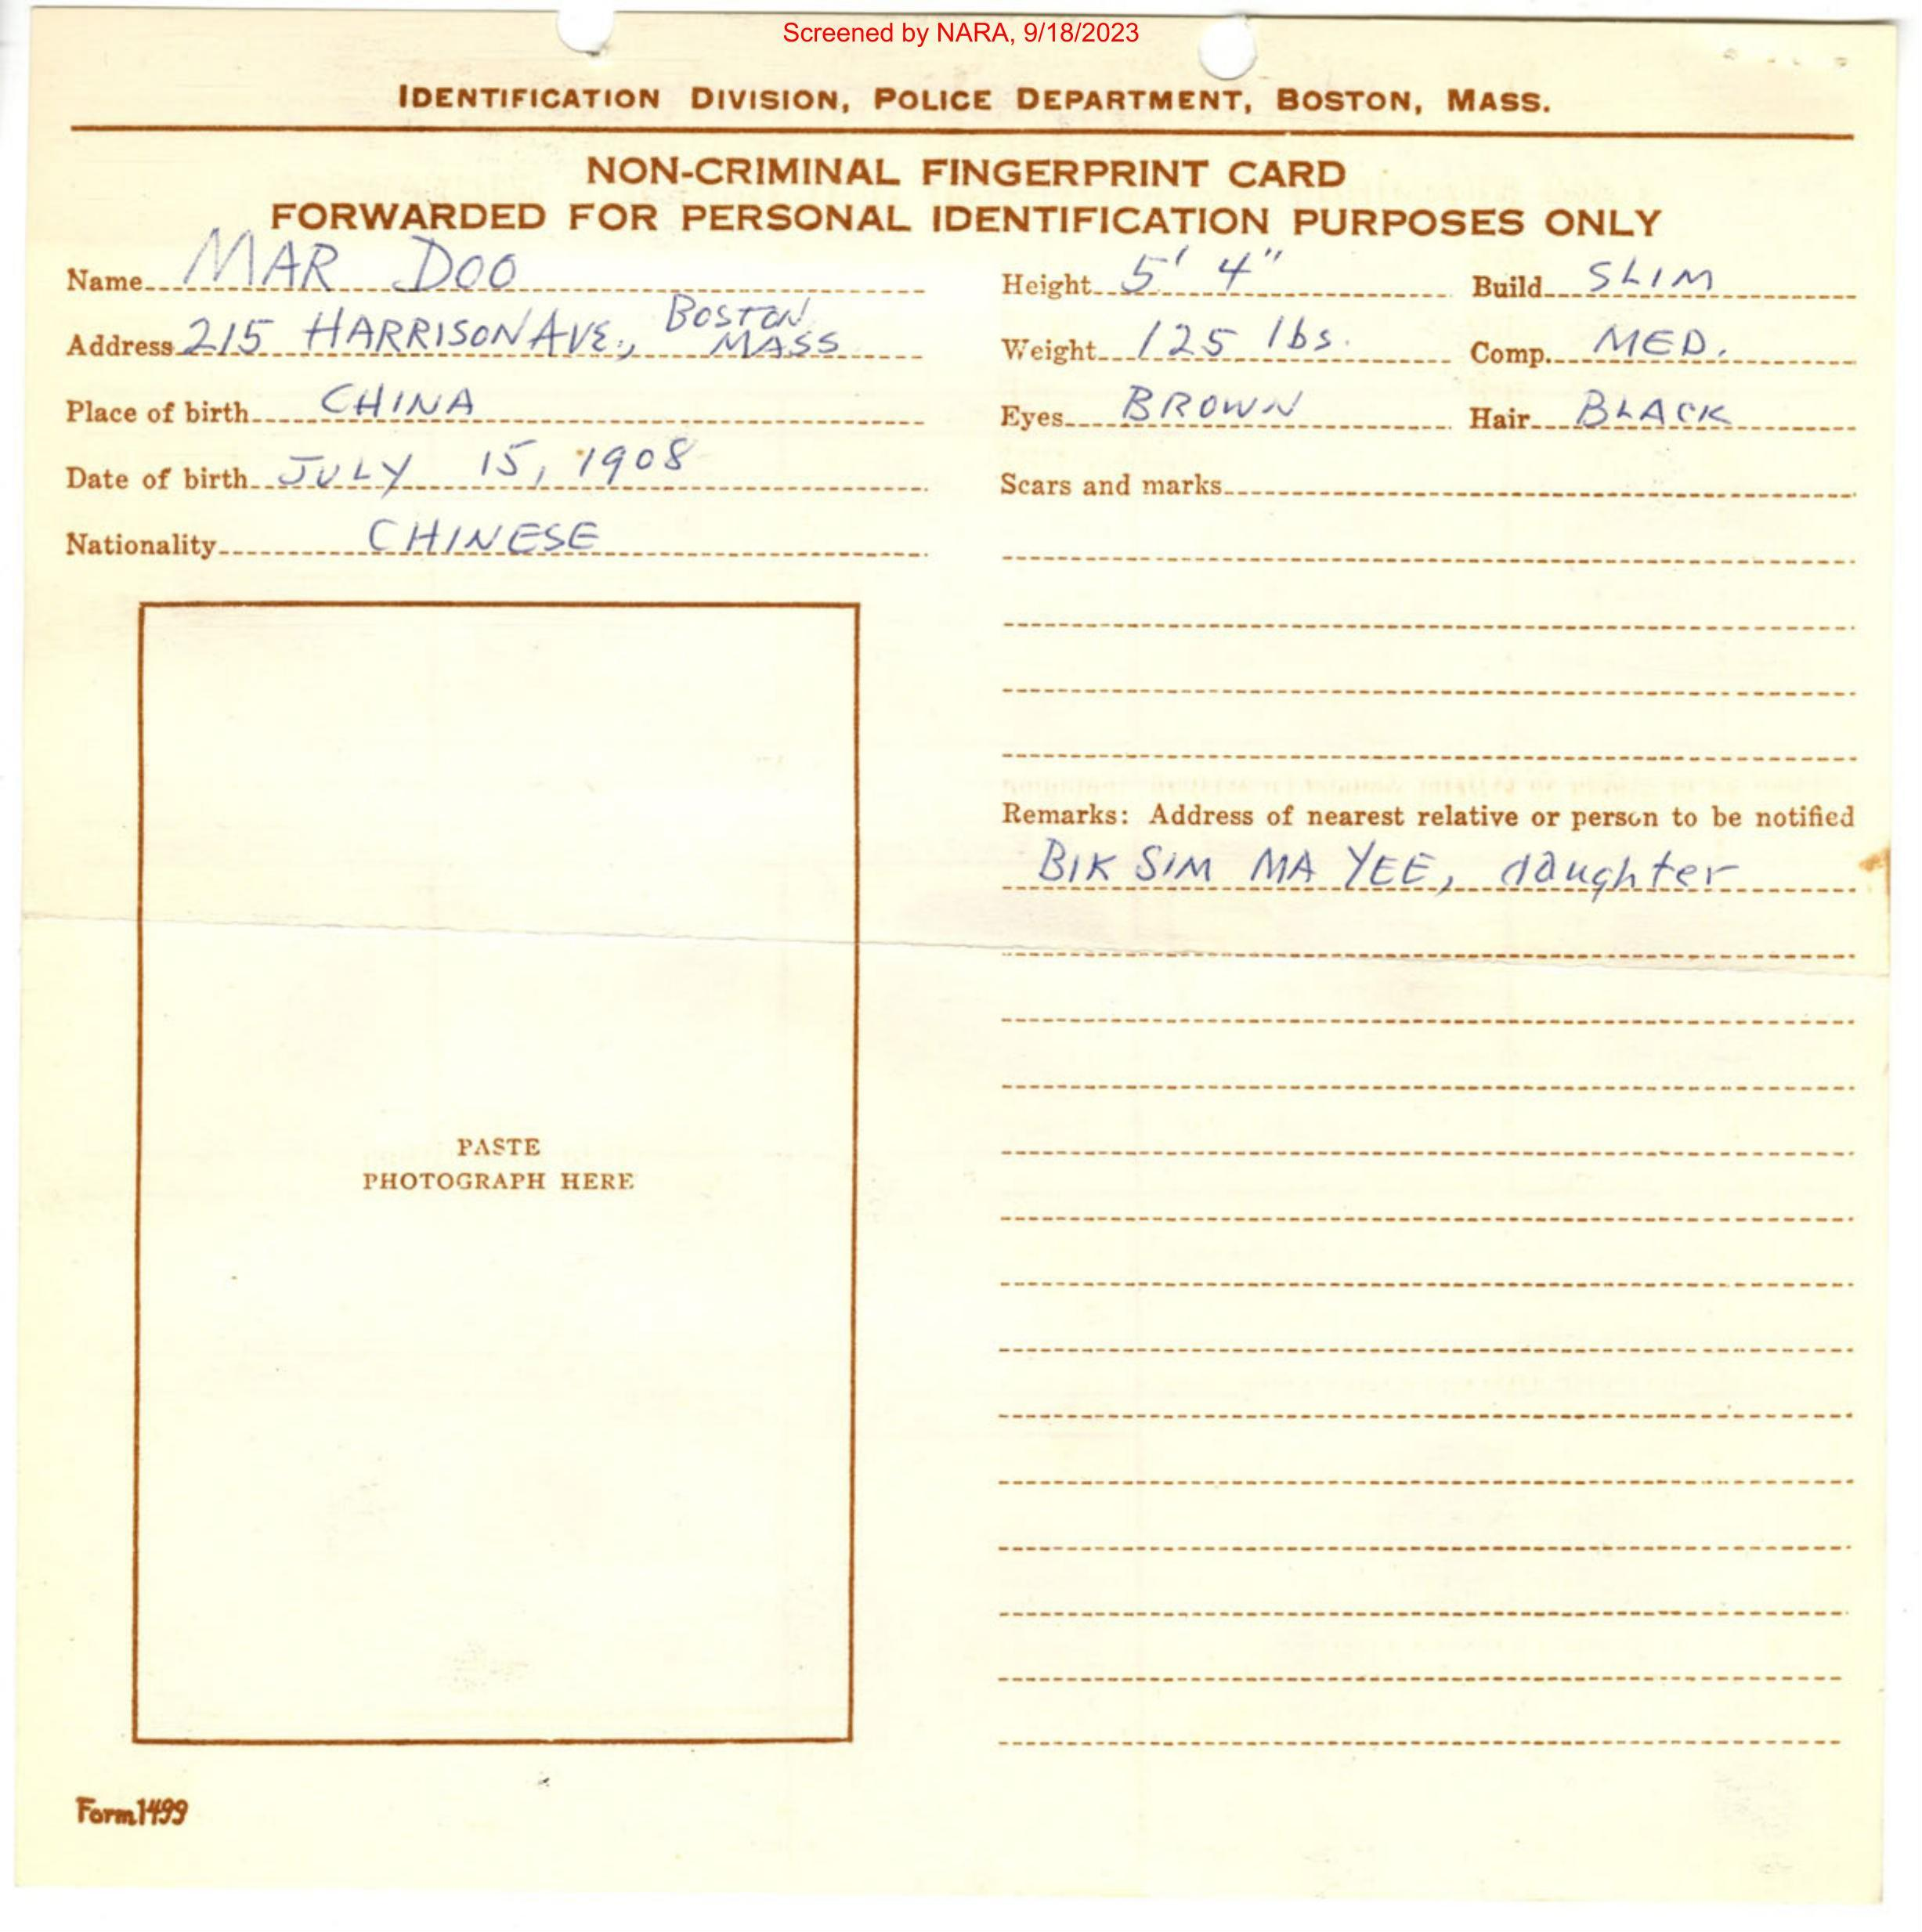 Screened by NARA, 9/18/2023
IDENTIFICATION DIVISION, POLICE DEPARTMENT, BOSTON, MASS.
NON-CRIMINAL FINGERPRINT CARD
FORWARDED FOR PERSONAL IDENTIFICATION PURPOSES ONLY
Name MAR DOO
Address 215 HARRISON AVE., BOSTON
MASS
Place of birth CHINA
Date of birth JULY 15, 1908
Nationality CHINESE
Height 5' 4" Build SLIM
Weight 125 lbs. Comp. MED.
Eyes BROWN Hair BLACK
Scars and marks
Remarks: Address of nearest relative or person to be notified
BIK SIM MA YEE, daughter
PASTE
PHOTOGRAPH HERE
Form 1499